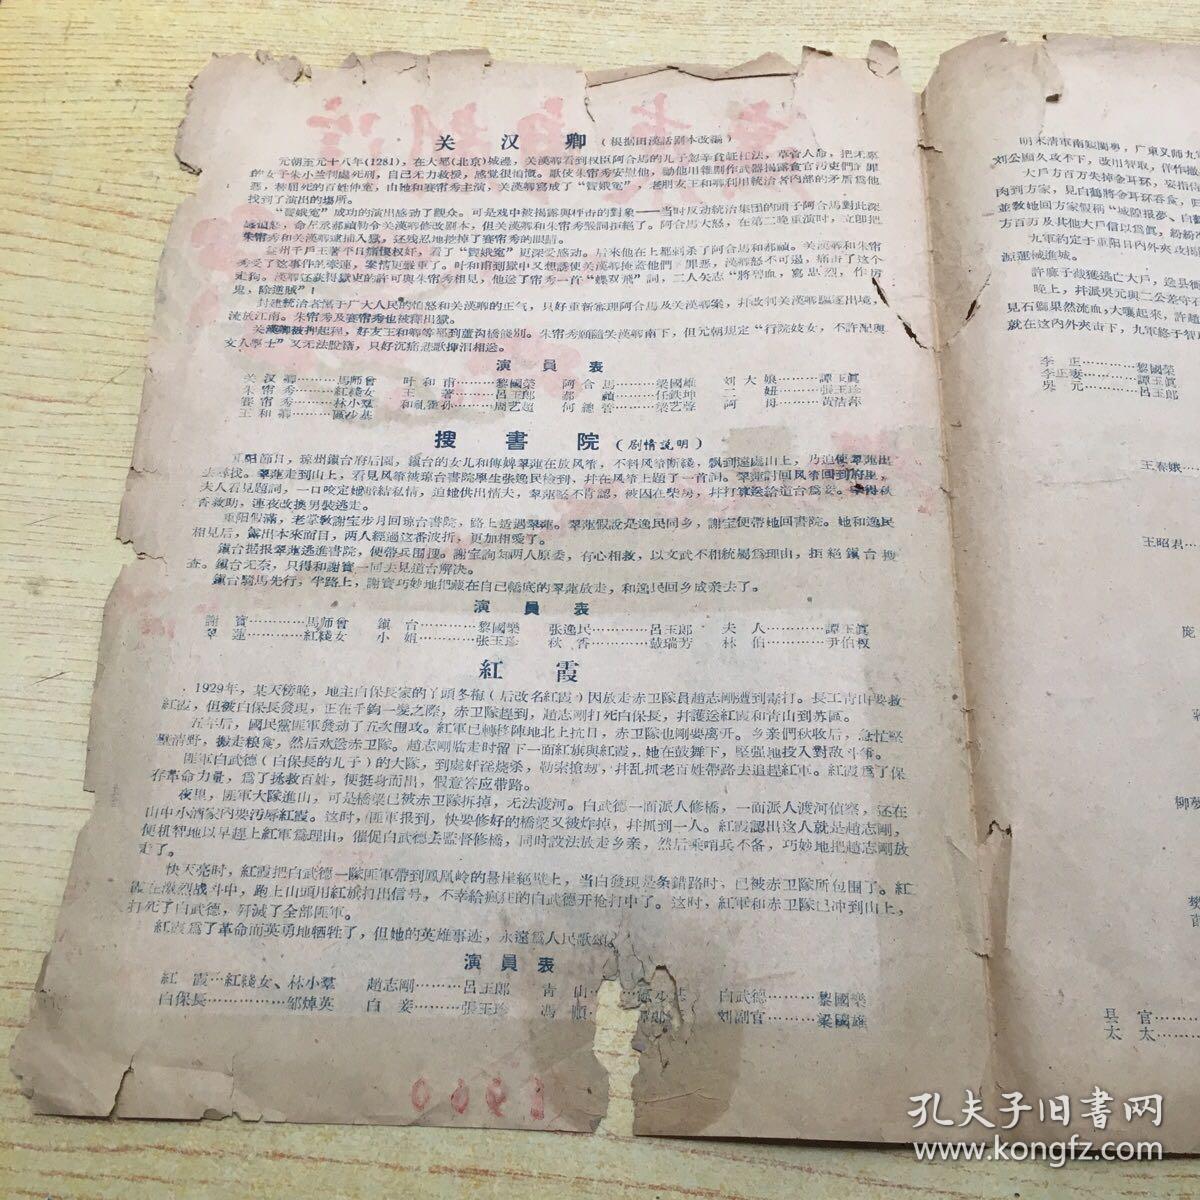 关汉卿（根据田漢話剧本改編）
元朝至元十八年(1281)，在大都(北京)城邊，关漢卿看到权臣阿合馬的儿子忽辛貪贓枉法，草管人命，把无辜
的女子朱小兰判處死刑，自己无力救援，感覚很惱慨。歌伎朱帘秀安慰他，勸他用雜剧作武器揭露貪官污吏們許罪
惡，替屈死的百姓伸寃，由她和賽帘秀主演，关漢卿寫成了“竇娥寃”，老朋友王和卿利用統治者內部的矛盾爲他
找到了演出的塲所。
“竇娥寃”成功的演出感动了觀众。可是戏中被揭露與抨击的對象——当时反动統治集团的頭子阿合馬對此深
感惱怒，命左丞郝禎勒令关漢卿修改剧本，但关漢卿和朱帘秀堅詞拒絕了。阿合馬大怒，在第二晚重演时，立即把
朱帘秀和关漢卿逮捕入獄，还残忍地挖掉了賽帘秀的眼睛。
益州千戶王著平日痛恨权奸，看了“竇娥寃”更深受感动。后來他在上都刺杀了阿合馬和郝禎。关漢卿和朱帘
秀受了这事件的牽連，案情更嚴重了。叶和甫到獄中又想誘使关漢卿掩盖他們
走狗。漢卿还获得獄吏的許可與朱帘秀相見，他送了帘秀一件“蝶双飛”詞，二人矢志“將碧血，寫忠烈，作厉
鬼，除逆賊”！
封建統治者懾于广大人民的忿怒和关漢卿的正气，只好重新審理阿合馬及关漢卿案，幷改判关漢卿驅逐出境，
流放江南。朱帘秀及賽帘秀也被釋出獄。
关漢卿被押起程，好友王和卿等都到蘆沟橋餞別。朱帘秀願隨关漢卿南下，但元朝規定“行院妓女，不許配與
文人學士”又无法脫籍，只好沉痛悲歌揮泪相送。
演員表
关汉卿……馬师曾 叶和甫……黎國榮 阿合馬……梁國雄 刘大娘……譚玉眞
朱帘秀……紅綫女 王著……呂玉郎 郝禎……任鉄坤 二妞……張玉珍
賽帘秀……林小羣 和礼霍孙……周艺超 何總管……梁艺聲 阿母……黃洁萍
王和卿……區少基
搜書院（剧情說明）
重阳節日，琼州鎭台府后园，鎭台的女儿和侍婢翠蓮在放风筝，不料风筝断綫，飘到遠處山上，乃迫使翠蓮出
去尋找。翠蓮走到山上，看見风筝被琼台書院學生張逸民檢到，幷在风筝上題了一首詞。翠蓮討回风筝囘到府里，
夫人看見題詞，一口咬定她暗結私情，迫她供出情夫，翠蓮堅不肯認，被囚在柴房，幷打算送給道台爲妾。幸得秋
香救助，連夜改換男裝逃走。
重阳假滿，老掌敎謝宝步月回琼台書院，路上适遇翠蓮。翠蓮假說是逸民同乡，謝宝便帶她回書院。她和逸民
相見后，露出本來面目，两人經過这番波折，更加相愛了。
鎭台据报翠蓮逃進書院，便帶兵围搜。謝宝詢知两人原委，有心相救，以文武不相統屬爲理由，拒絕鎭台搜
查。鎭台无奈，只得和謝寳一同去見道台解决。
鎭台騎馬先行，半路上，謝寳巧妙地把藏在自己轎底的翠蓮放走，和逸民回乡成亲去了。
演員表
謝寶……馬师曾 鎭台……黎國榮 張逸民……呂玉郎 夫人……譚玉眞
翠蓮……紅綫女 小姐……張玉珍 秋香……瑞芳 林伯……尹伯权
紅霞
1929年，某天傍晚，地主白保長家的丫頭冬梅（后改名紅霞）因放走赤卫隊員趙志剛遭到毒打。長工青山要救
紅霞，但被白保長發現，正在千鈞一髮之際，赤卫隊趕到，趙志剛打死白保長，幷護送紅霞和青山到苏區。
五年后，國民黨匪軍發动了五次囘攻。紅軍已轉移陣地北上抗日，赤卫隊也剛要离开。乡亲們秋收后，急忙堅
壁清野，搬走粮食，然后欢送赤卫隊。趙志剛临走时留下一面紅旗與紅霞，她在鼓舞下，堅强地投入對敌斗爭。
匪軍白武德（白保長的儿子）的大隊，到處奸淫烧杀，勒索搶刧，幷乱抓老百姓帶路去追趕紅軍。紅霞爲了保
存革命力量，爲了拯救百姓，便挺身而出，假意答应帶路。
夜里，匪軍大隊進山，可是橋梁已被赤卫隊拆掉，无法渡河。白武德一面派人修橋，一面派人渡河偵察，还在
山中小酒家內要污辱紅霞。这时，匪軍报到，快要修好的橋梁又被炸掉，幷抓到一人。紅霞認出这人就是趙志剛，
便机智地以早趕上紅軍爲理由，催促白武德去監督修橋，同时設法放走乡亲，然后乘哨兵不备，巧妙地把趙志剛放
走了。
快天亮时，紅霞把白武德一隊匪軍帶到鳳凰岭的悬崖絕壁上，当白發現是条錯路时，已被赤卫隊所包圍了。紅
霞在激烈战斗中，跑上山頭用紅旗打出信号，不幸給瘋狂的白武德开枪打中了。这时，紅軍和赤卫隊已冲到山上，
打死了白武德，歼滅了全部匪軍。
紅霞爲了革命而英勇地牺牲了，但她的英雄事迹，永遠爲人民歌頌。
演員表
紅霞…紅綫女、林小羣 趙志剛……呂玉郎 青山…… 白武德……黎國榮
白保長……邹焯英 白妾……張玉珍 馮順…… 刘副官……梁國雄
1960
明末清軍南侵閩粤，广東义师九軍
刘公顯久攻不下，改用智取，
大戶方百万失掉金耳环，
肉到方家，見白鶴將金耳环吞食，
並敎她回方家假稱“城險報夢、白鶴
方百万及其他大戶信以爲眞，紛紛
九軍約定于重阳日内外夹攻揭
派蓮城進城。
許廉于截獲逃亡大戶，
晚上，幷派吳元與二公差守石
見石獅果然流血，大嚷起來，許趙
就在这內外夹击下，九軍終于智取
李正……黎國榮
李正妻……譚玉眞
吳元……呂玉郎
王春娥…
王昭君…
庞
柳
樊
县官…
太太…
孔夫子旧書网
www.kongfz.com